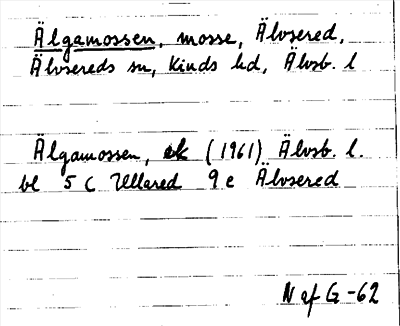 Älgamossen, mosse, Älvsered,
Älvsereds sn, Kinds hd, Älvsb. l
Älgamossen, ek (1961) Älvsb. l.
bl 5 C Ullared 9 e Älvsered
N af G -62